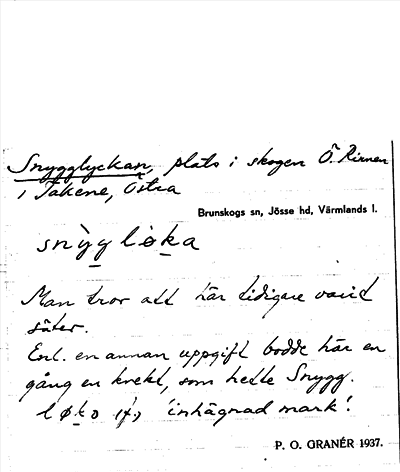 Snygglyckan, plats i skogen Ö. Rinnen
i Takene, Östra
Brunskogs sn, Jösse hd, Värmlands l.
snỳg løka
Man tror att här tidigare varit
säter.
Enl. en annan uppgift bodde här en
gång en knekt, som hette Snygg.
løkə (f) 'inhägnad mark'.
P. O. GRANÉR 1937.